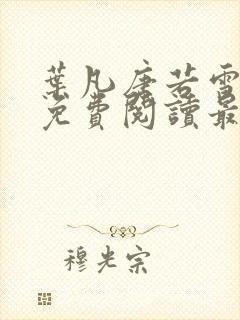 葉凡唐若雪
免費閱讀最
穆光宗